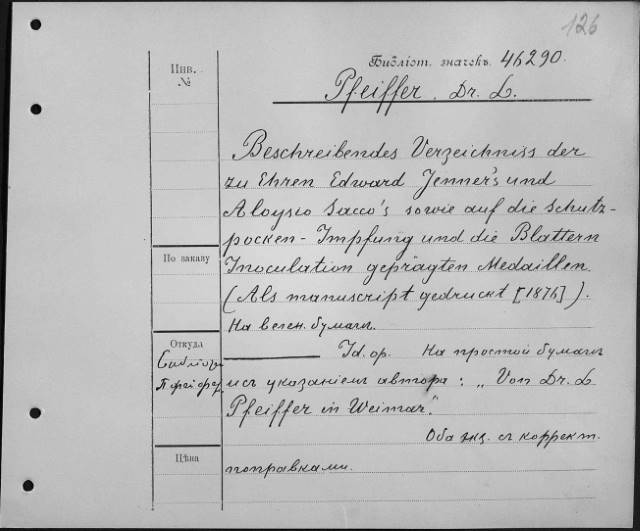 126
Инв.
№
Библіот. значекъ 46290.
Pfeiffer, Dr. L.
Beschreibendes Verzeichniss der
zu Ehren Edward Jenner's und
Aloysio Sacco's sowie auf die Schutz-
pocken-Impfung und die Blattern
По заказу
Inoculation geprägten Medaillen
(Als manuscript gedruckt [1876]).
На велен. бумагѣ.
Откуда
——— Id. op. На простой бумагѣ
и съ указаніемъ автора: „Von Dr. L.
Pfeiffer in Weimar".
Оба экз. съ коррект.
Цѣна
поправками.